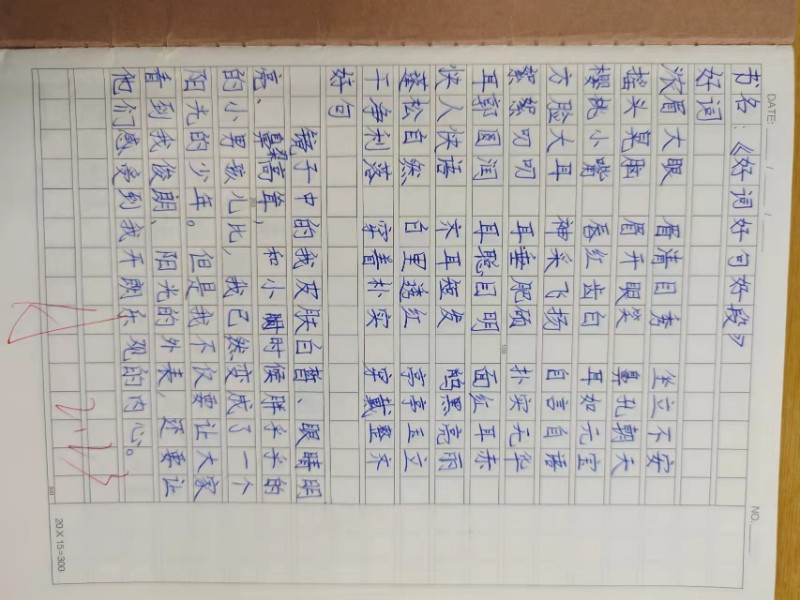 DATE: / /
NO.
书名:《好词好句好段》
好词
浓眉大眼 眉清目秀 坐立不安
摇头晃脑 眉开眼笑 鼻孔朝天
樱桃小嘴 唇红齿白 耳如元宝
方脸大耳 神采飞扬 自言自语
絮絮叨叨 耳垂肥硕 朴实无华
耳郭圆润 耳聪目明 面红耳赤
快人快语 齐耳短发 黝黑亮丽
蓬松自然 白里透红 亭亭玉立
干净利落 穿着朴实 穿戴整齐
好句
镜子中的我皮肤白皙、眼睛明
亮、鼻梁高耸,和小时候胖乎乎的
的小男孩儿比,我已然变成了一个
阳光的少年。但是我不仅要让大家
看到我俊朗、阳光的外表,还要让
他们感受到我开朗乐观的内心。
20×15=300